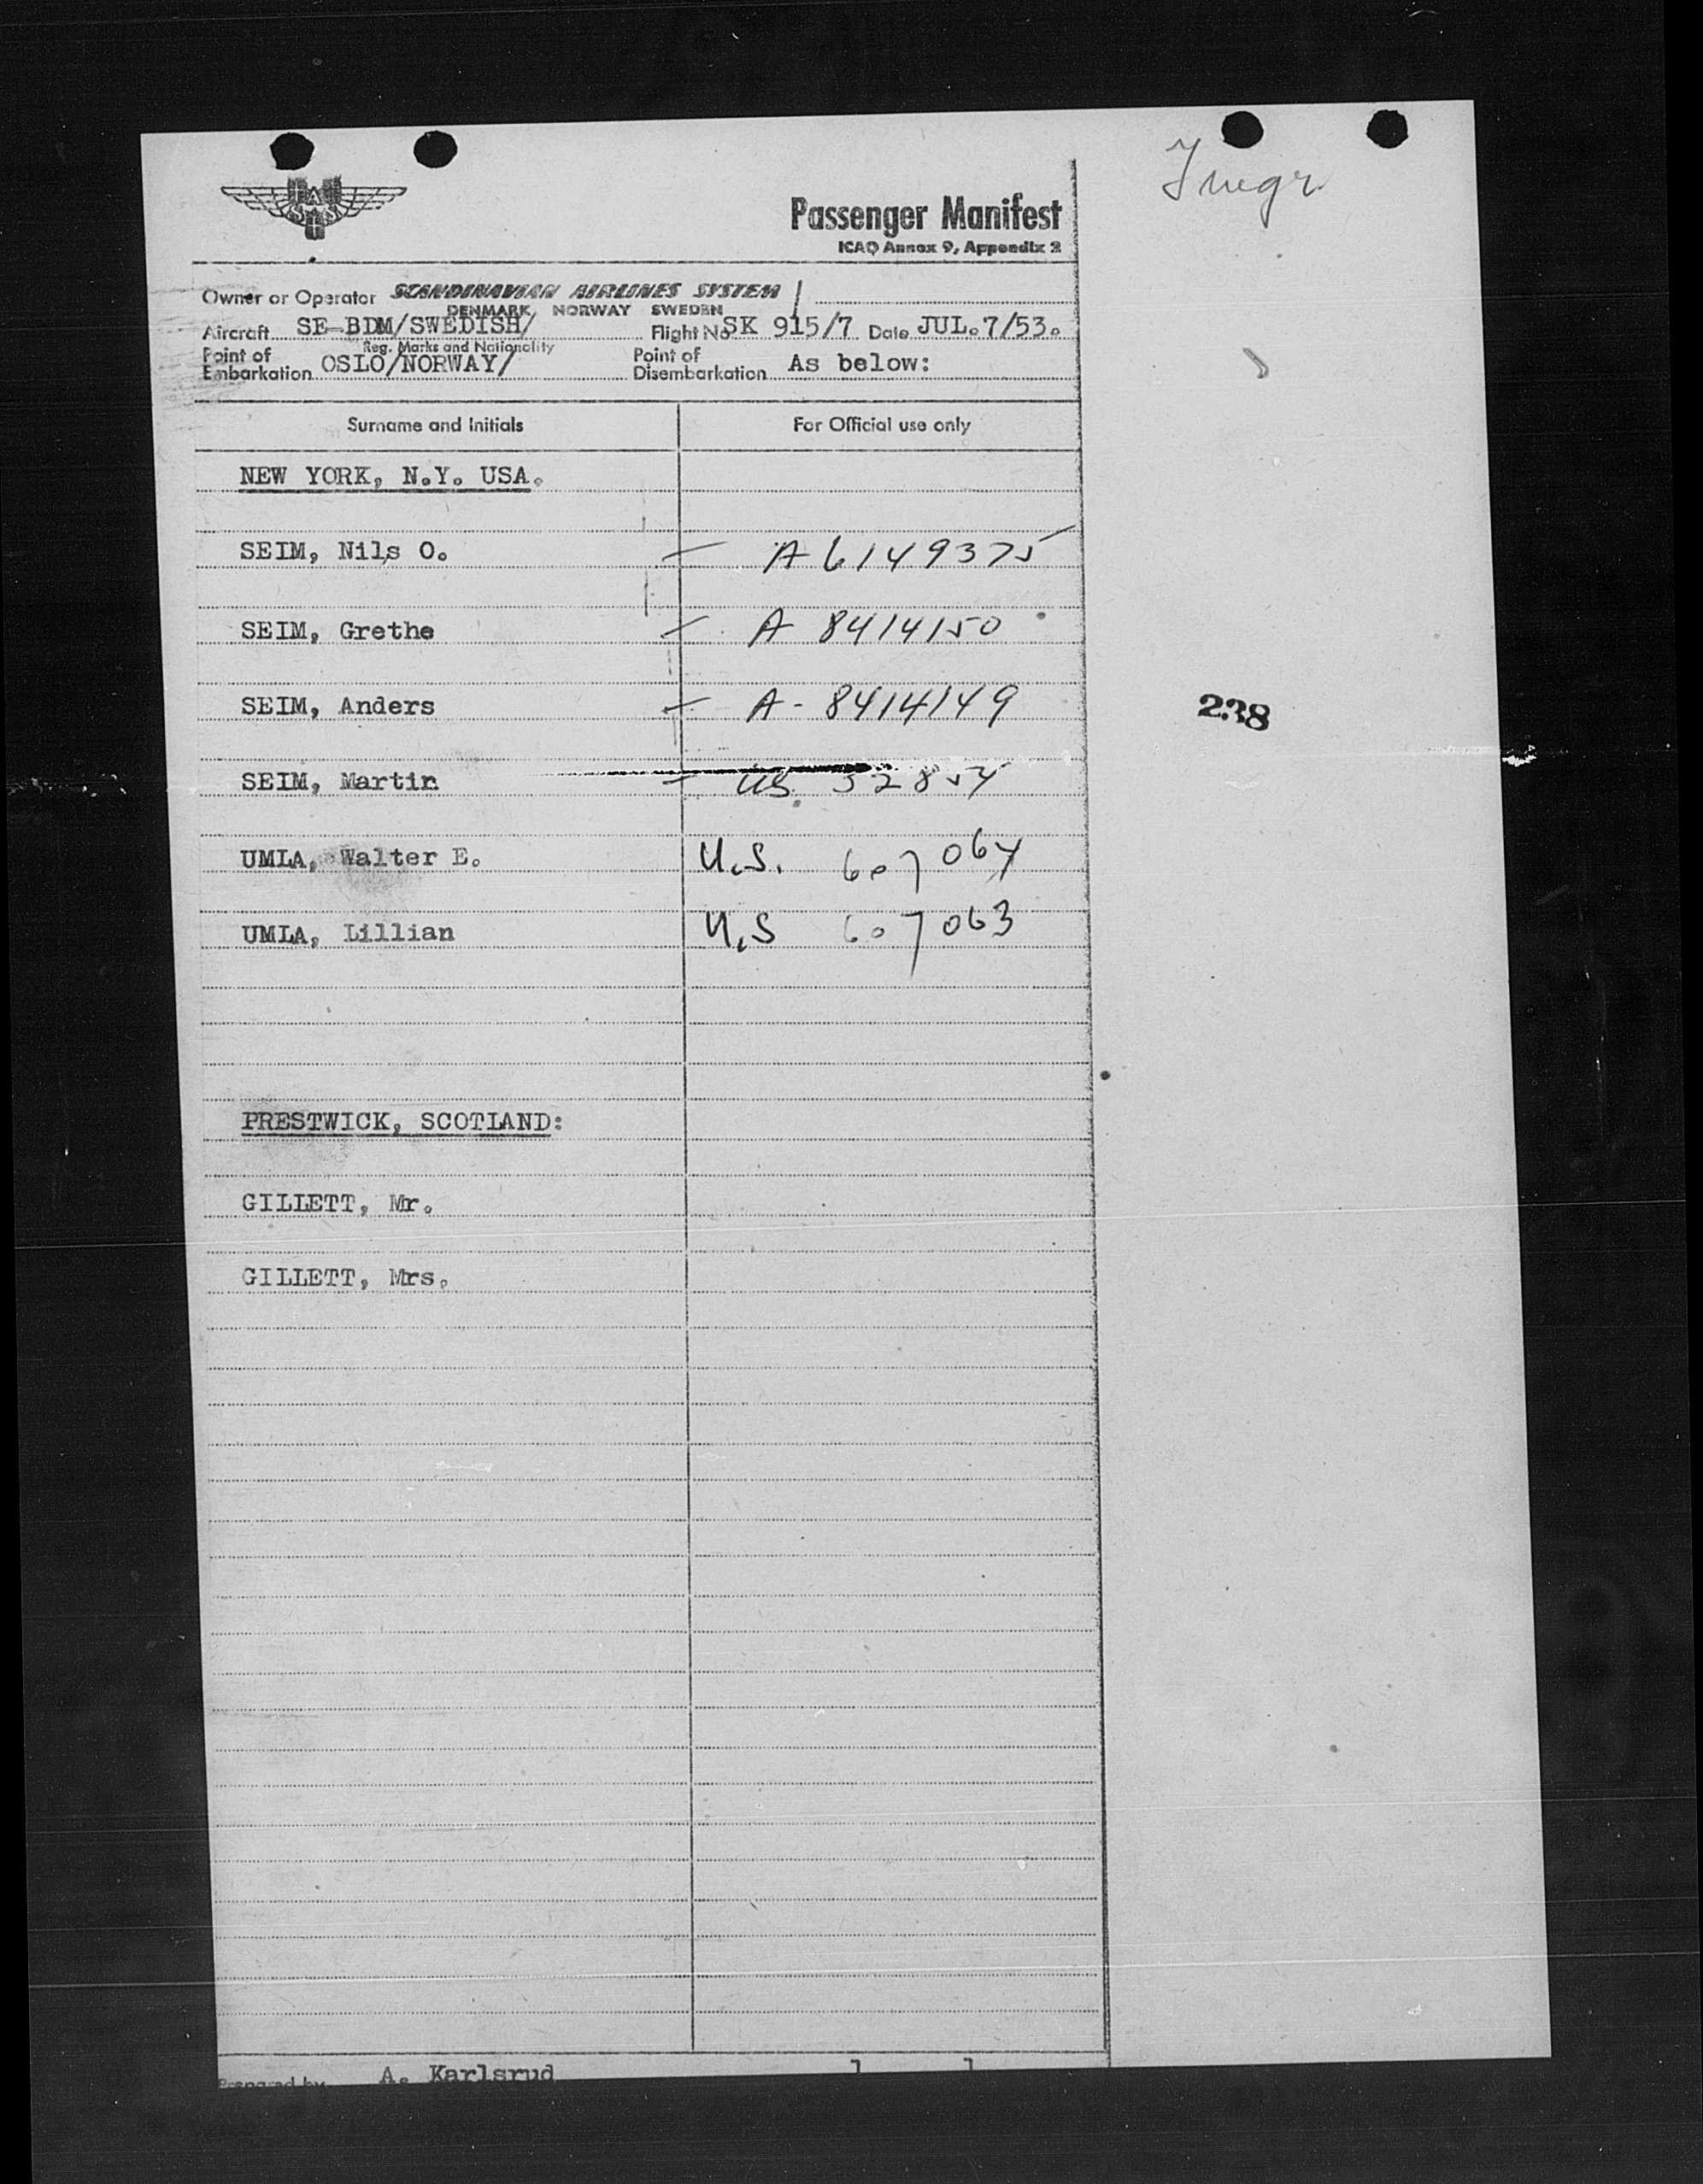 Passenger Manifest
ICAO Annex 9, Appendix 2
Owner or Operator SCANDINAVIAN AIRLINES SYSTEM
DENMARK NORWAY SWEDEN
Aircraft SE-BDM/SWEDISH/ Flight No SK 915/7 Date JUL.7/53.
Reg. Marks and Nationality
Point of Embarkation OSLO/NORWAY/ Point of Disembarkation As below:
Surname and Initials For Official use only
NEW YORK, N.Y. USA.
SEIM, Nils O. A 6149375
SEIM, Grethe A 8414150
SEIM, Anders A-8414149
238
SEIM, Martin US 52854
UMLA, Walter E. U.S. 607064
UMLA, Lillian U.S 607063
PRESTWICK, SCOTLAND:
GILLETT, Mr.
GILLETT, Mrs.
Prepared by A. Karlsrud 1 1